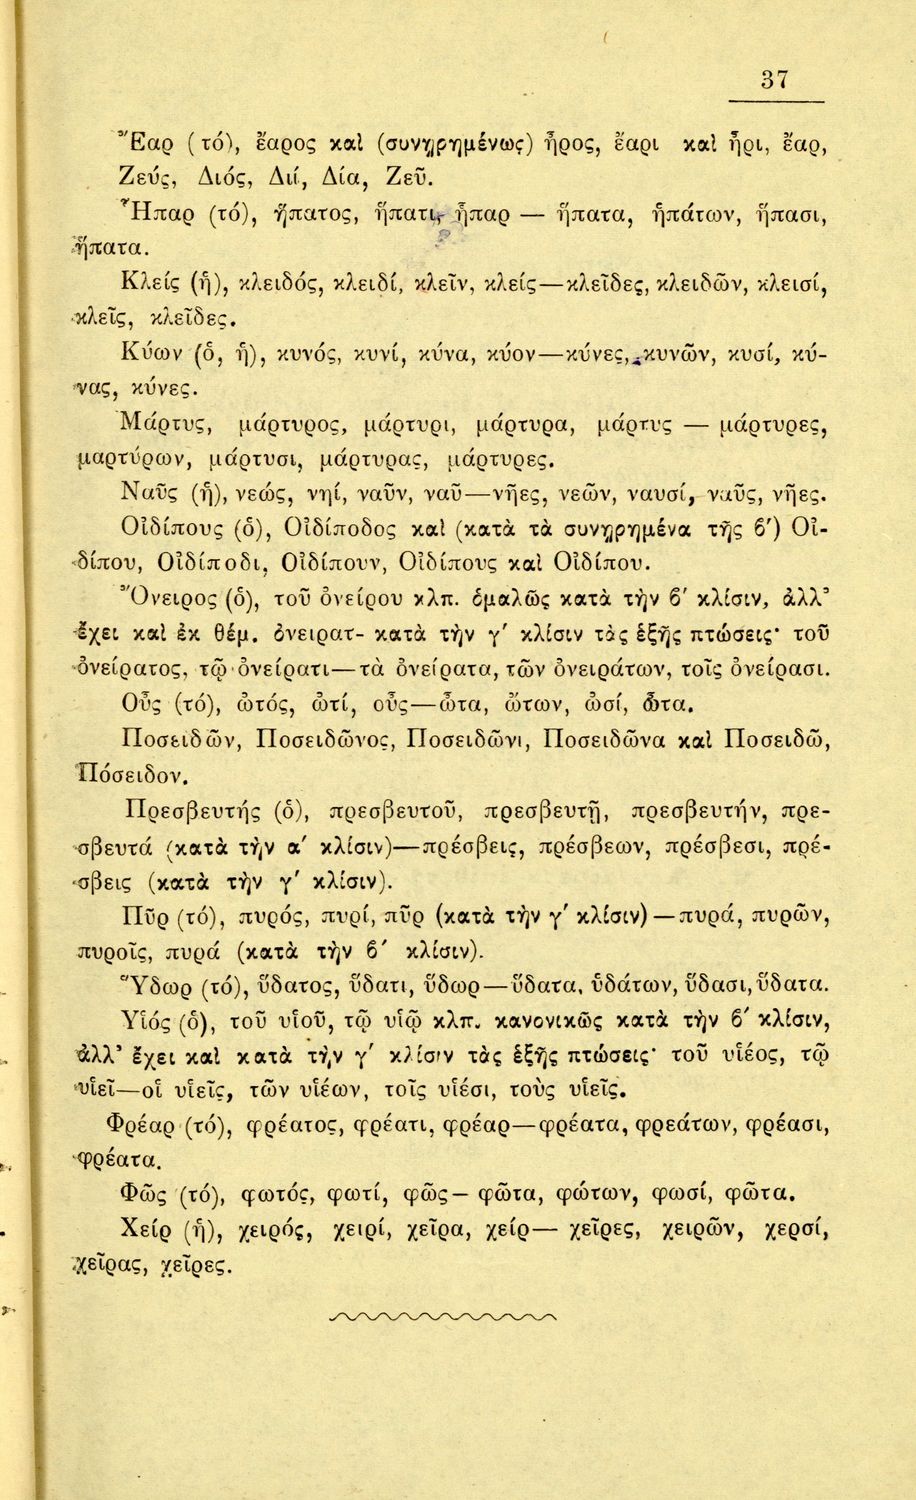 37
Ἔαρ (τό), ἔαρος καὶ (συνῃρημένως) ἦρος, ἔαρι καὶ ἦρι, ἔαρ,
Ζεύς, Διός, Διί, Δία, Ζεῦ.
Ἧπαρ (τό), ἥπατος, ἥπατι, ἧπαρ — ἥπατα, ἡπάτων, ἥπασι,
ἥπατα.
Κλείς (ἡ), κλειδός, κλειδί, κλεῖν, κλείς—κλεῖδες, κλειδῶν, κλεισί,
κλεῖς, κλεῖδες.
Κύων (ὁ, ἡ), κυνός, κυνί, κύνα, κύον—κύνες, κυνῶν, κυσί, κύ-
νας, κύνες.
Μάρτυς, μάρτυρος, μάρτυρι, μάρτυρα, μάρτυς — μάρτυρες,
μαρτύρων, μάρτυσι, μάρτυρας, μάρτυρες.
Ναῦς (ἡ), νεώς, νηί, ναῦν, ναῦ—νῆες, νεῶν, ναυσί, ναῦς, νῆες.
Οἰδίπους (ὁ), Οἰδίποδος καὶ (κατὰ τὰ συνῃρημένα τῆς β′) Οἰ-
δίπου, Οἰδίποδι, Οἰδίπουν, Οἰδίπους καὶ Οἰδίπου.
Ὄνειρος (ὁ), τοῦ ὀνείρου κλπ. ὁμαλῶς κατὰ τὴν β′ κλίσιν, ἀλλ’
ἔχει καὶ ἐκ θέμ. ὀνειρατ- κατὰ τὴν γ′ κλίσιν τὰς ἑξῆς πτώσεις· τοῦ
ὀνείρατος, τῷ ὀνείρατι—τὰ ὀνείρατα, τῶν ὀνειράτων, τοῖς ὀνείρασι.
Οὖς (τό), ὠτός, ὠτί, οὖς—ὦτα, ὤτων, ὠσί, ὦτα.
Ποσειδῶν, Ποσειδῶνος, Ποσειδῶνι, Ποσειδῶνα καὶ Ποσειδῶ,
Πόσειδον.
Πρεσβευτής (ὁ), πρεσβευτοῦ, πρεσβευτῇ, πρεσβευτήν, πρε-
σβευτά (κατὰ τὴν α′ κλίσιν)—πρέσβεις, πρέσβεων, πρέσβεσι, πρέ-
σβεις (κατὰ τὴν γ′ κλίσιν).
Πῦρ (τό), πυρός, πυρί, πῦρ (κατὰ τὴν γ′ κλίσιν)—πυρά, πυρῶν,
πυροῖς, πυρά (κατὰ τὴν β′ κλίσιν).
Ὕδωρ (τό), ὕδατος, ὕδατι, ὕδωρ—ὕδατα, ὑδάτων, ὕδασι, ὕδατα.
Υἱός (ὁ), τοῦ υἱοῦ, τῷ υἱῷ κλπ. κανονικῶς κατὰ τὴν β′ κλίσιν,
ἀλλ’ ἔχει καὶ κατὰ τὴν γ′ κλίσιν τὰς ἑξῆς πτώσεις· τοῦ υἱέος, τῷ
υἱεῖ—οἱ υἱεῖς, τῶν υἱέων, τοῖς υἱέσι, τοὺς υἱεῖς.
Φρέαρ (τό), φρέατος, φρέατι, φρέαρ—φρέατα, φρεάτων, φρέασι,
φρέατα.
Φῶς (τό), φωτός, φωτί, φῶς— φῶτα, φώτων, φωσί, φῶτα.
Χείρ (ἡ), χειρός, χειρί, χεῖρα, χείρ— χεῖρες, χειρῶν, χερσί,
χεῖρας, χεῖρες.